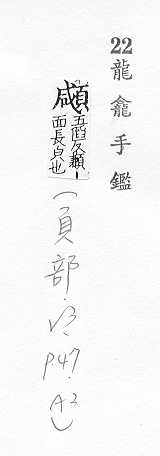 22 龍龕手鑑
顑 五陷反顑ー
面長皃也
(頁部·V3·P.47·A2)